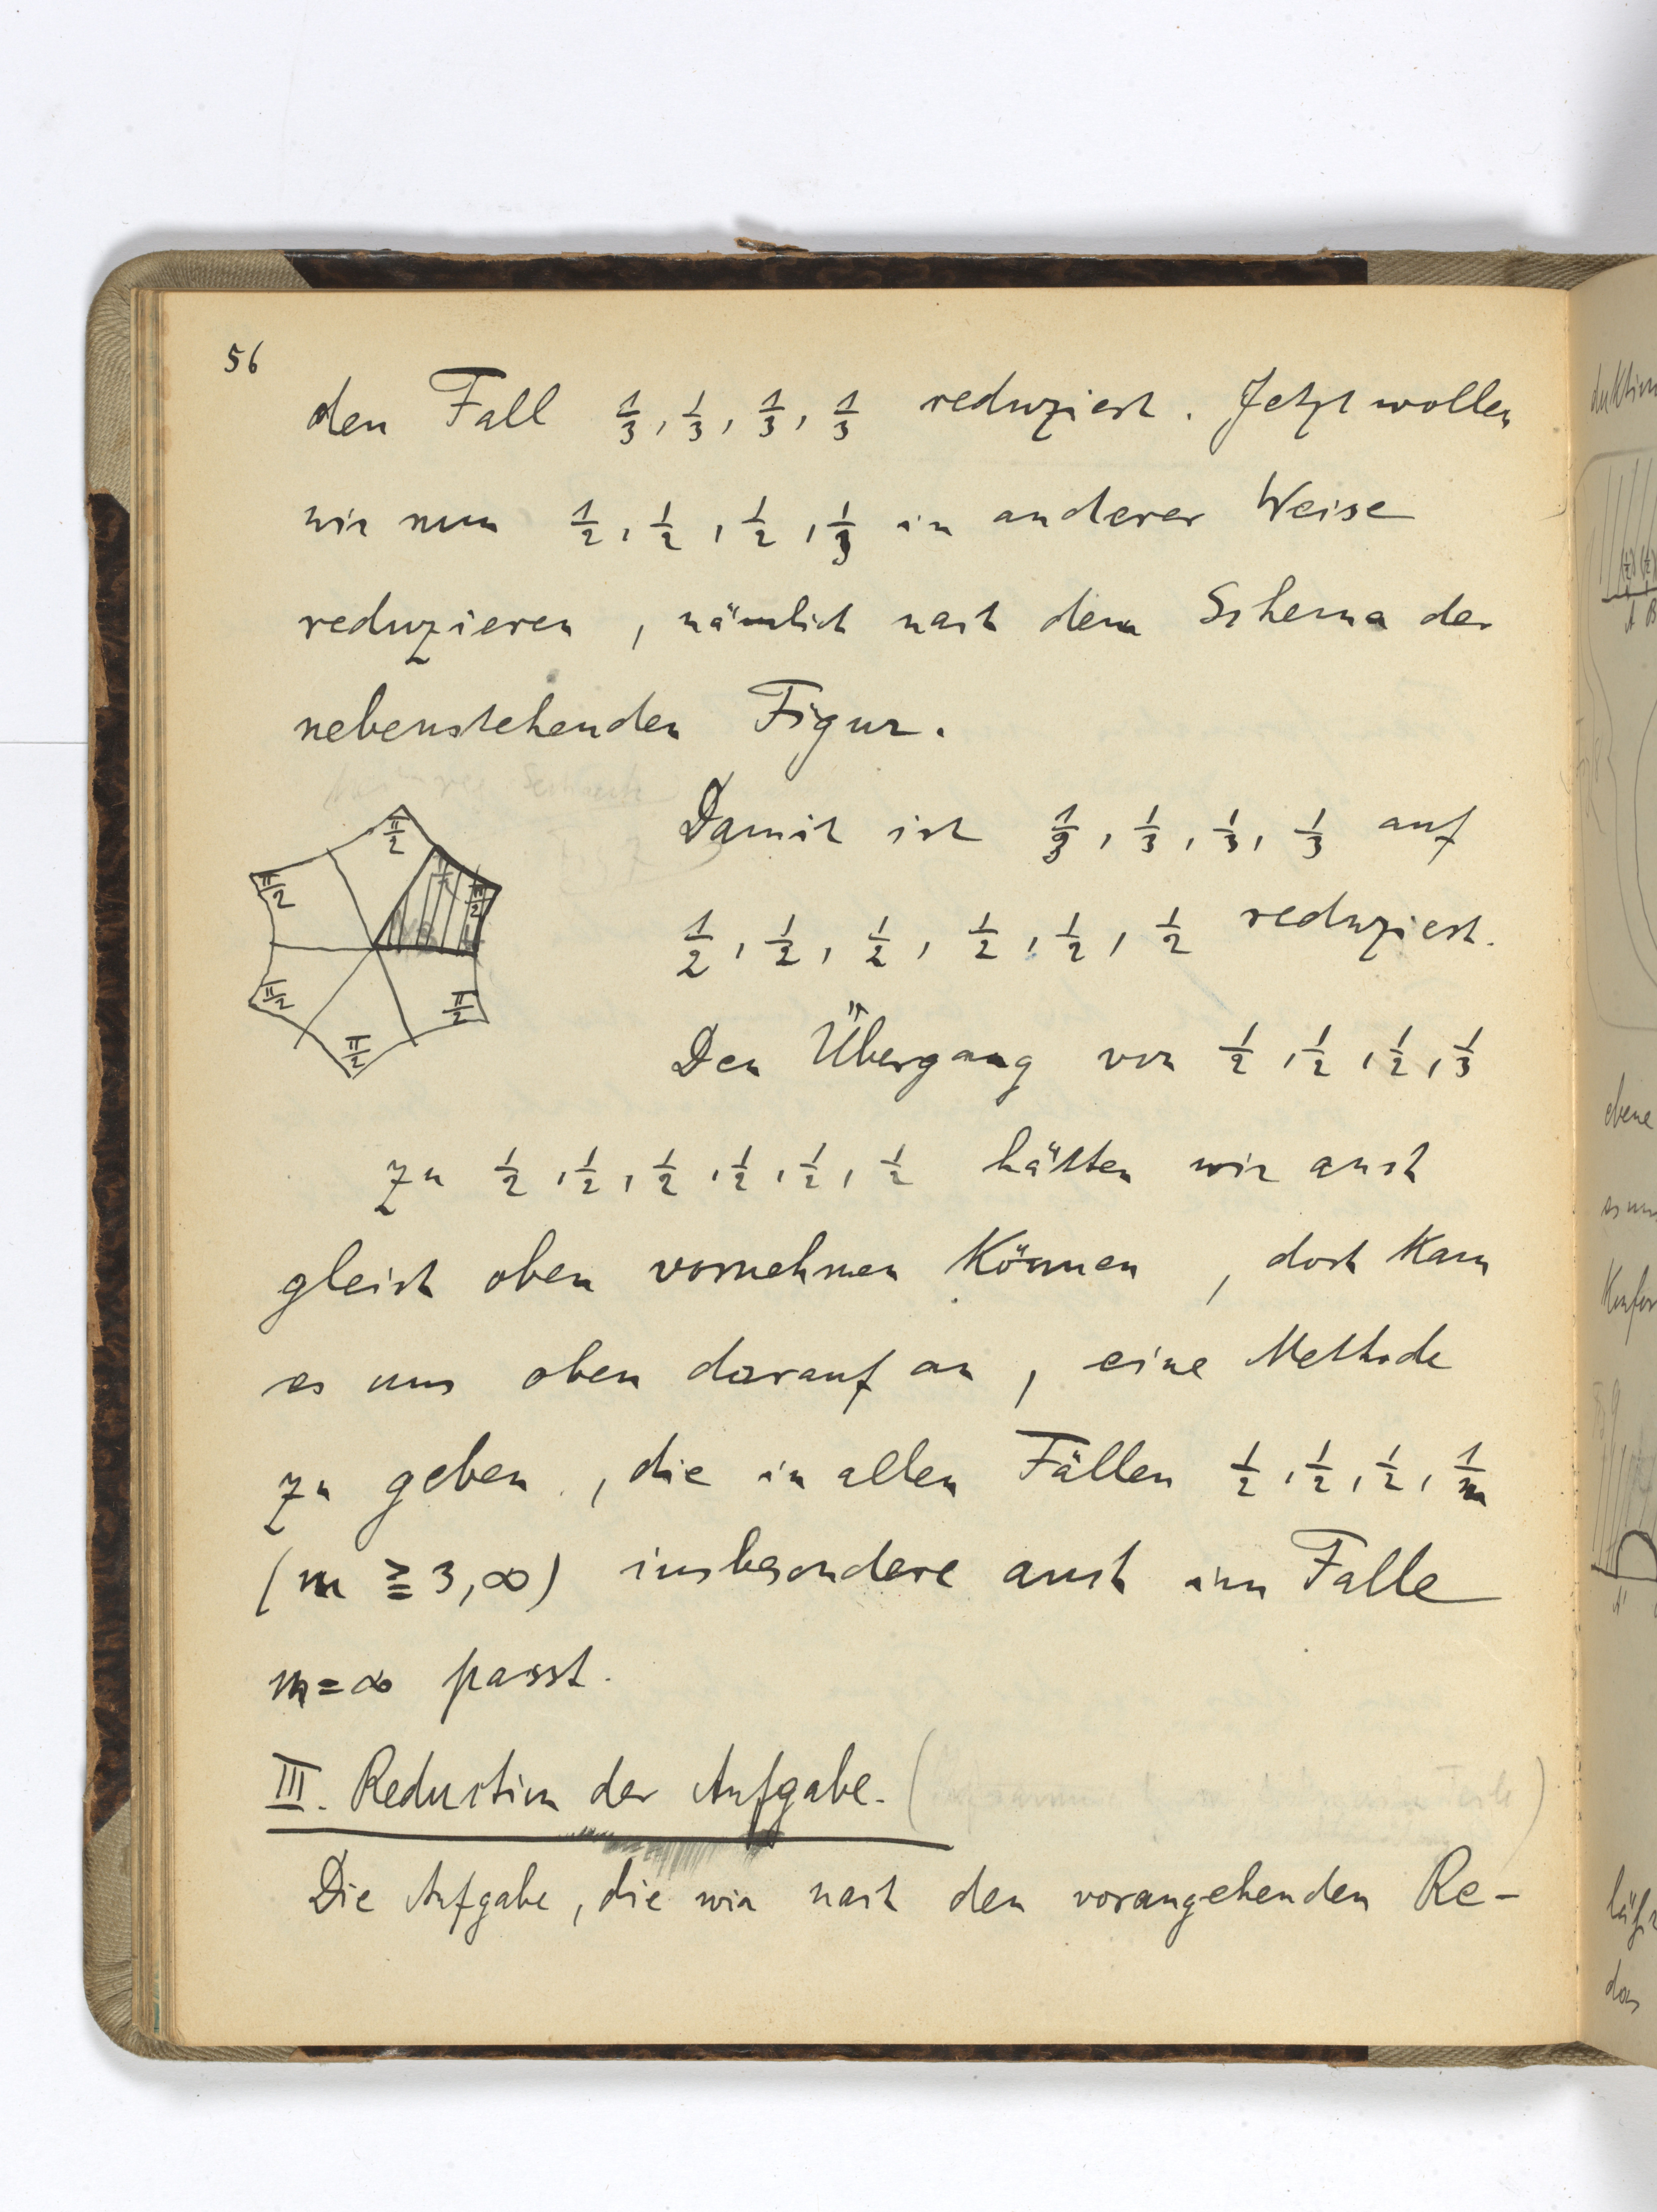 56
den Fall 1/3, 1/3, 1/3, 1/3 reduziert. Jetzt wollen
wir nun 1/2, 1/2, 1/2, 1/3 in anderer Weise
reduzieren, nämlich nach dem Schema der
nebenstehenden Figur.
π/2
π/2
π/2
π/2
π/2
π/2
Damit ist 1/3, 1/3, 1/3, 1/3 auf
1/2, 1/2, 1/2, 1/2, 1/2, 1/2 reduziert.
Den Übergang von 1/2, 1/2, 1/2, 1/3
zu 1/2, 1/2, 1/2, 1/2, 1/2, 1/2 hätten wir auch
gleich oben vornehmen können, doch kam
es uns oben darauf an, eine Methode
zu geben, die in allen Fällen 1/2, 1/2, 1/2, 1/m
(m ≧ 3, ∞) insbesondere auch im Falle
m=∞ passt.
III. Reduction der Aufgabe.
Die Aufgabe, die wir nach den vorangehenden Re-
ebene
das